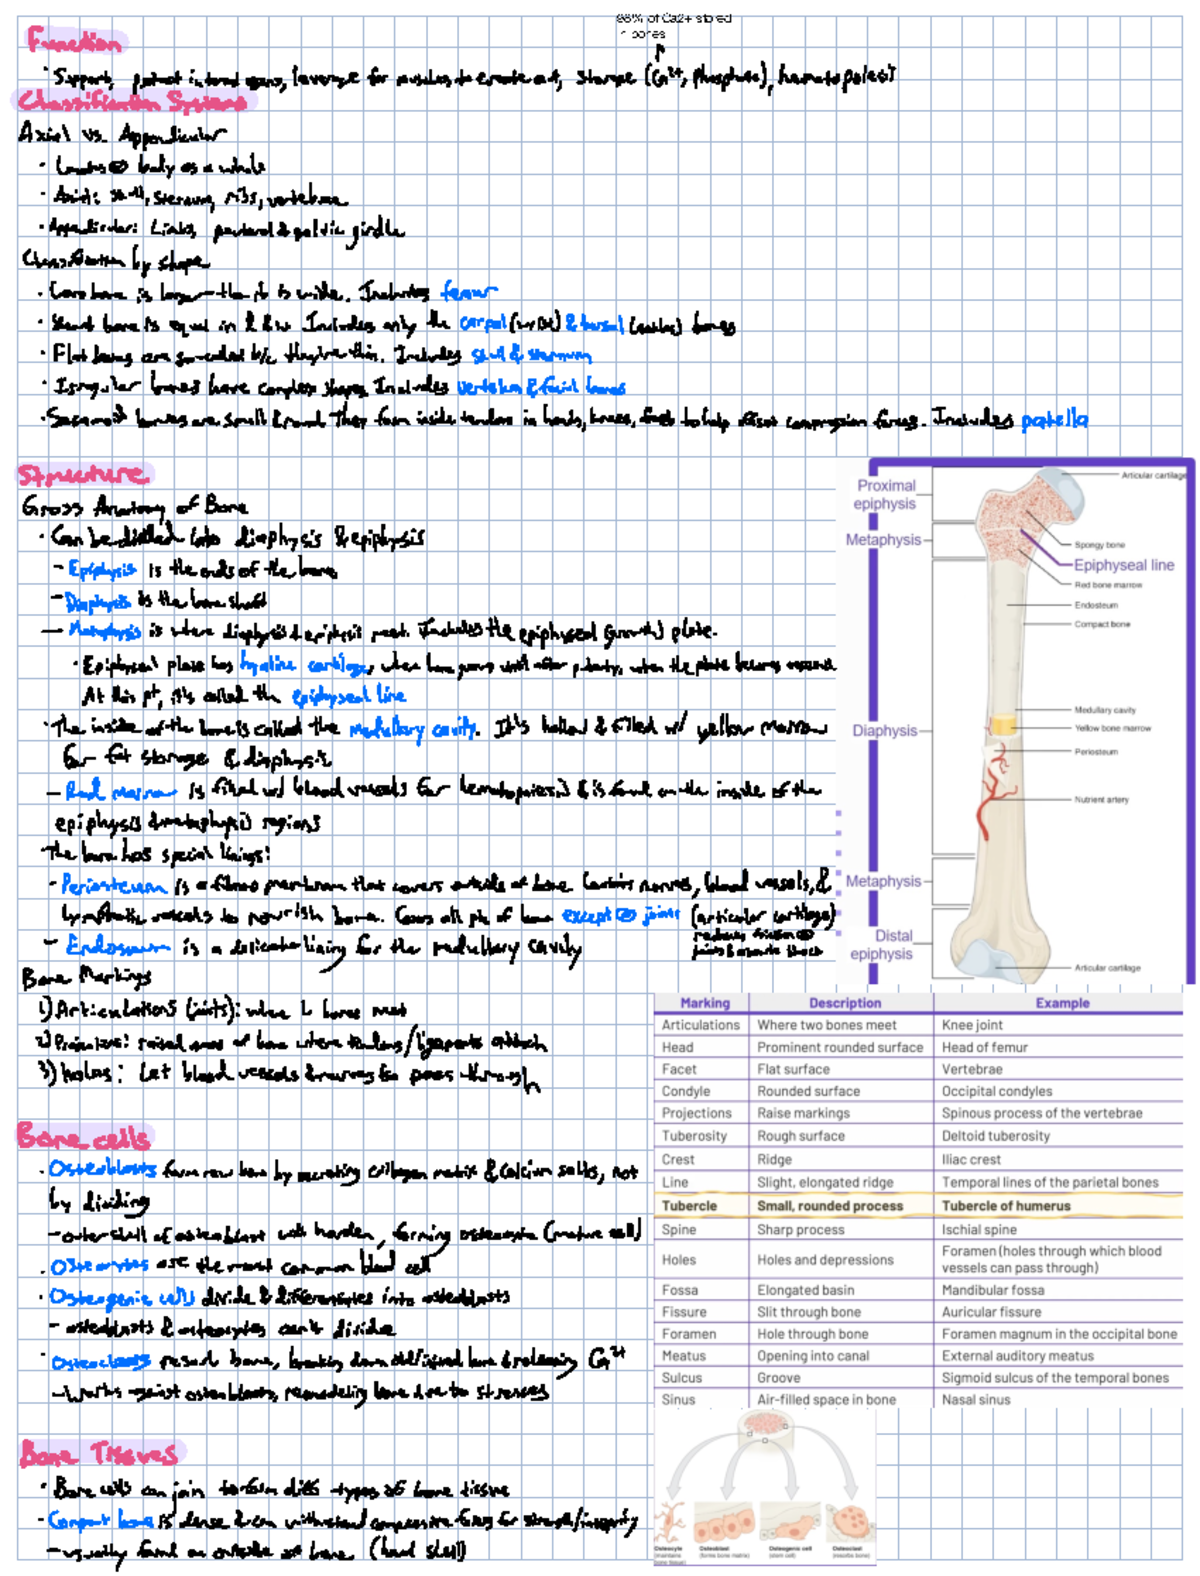 98% of Ca2+ stored
in bones
Function
· Support, protect internal organs, leverage for muscles to create mvt, storage (Ca²⁺, phosphate), hematopoiesis
Classification Systems
Axial vs. Appendicular
· body as a whole
· Axial: skull, sternum, ribs, vertebrae
· Appendicular: Limbs, pectoral & pelvic girdle
Classification by shape
· Long bone is longer than it is wide. Includes femur
· Short bone is equal in l & w. Includes only the carpal (wrist) & tarsal (ankles) bones
· Flat bones are so-called b/c they're thin. Includes skull & sternum
· Irregular bones have complex shapes. Includes vertebra & facial bones
· Sesamoid bones are small & round. They form inside tendons in hands, knees, feet to help resist compression forces. Includes patella
Structure
Gross Anatomy of Bone
· Can be divided into diaphysis & epiphysis
- Epiphysis is the ends of the bone
- Diaphysis is the bone shaft
- Metaphysis is where diaphysis & epiphysis meet. Includes the epiphyseal (growth) plate.
· Epiphyseal plate has hyaline cartilage, when bone grows until after puberty, when the plate becomes
At this pt, it's called the epiphyseal line
· The inside of the bone is called the medullary cavity. It's hollow & filled w/ yellow marrow
for fat storage & diaphysis
- Red marrow is filled w/ blood vessels for hematopoiesis & is found on the inside of the
epiphysis & metaphysis regions
· The bone has special linings:
- Periosteum is a fibrous membrane that covers outside of bone. Contains nerves, blood vessels, &
lymphatic vessels to nourish bone. Covers all pts of bone except @ joints (articular cartilage)
reduces friction @
joints & absorbs shock
- Endosteum is a delicate lining for the medullary cavity
Proximal
epiphysis
Metaphysis
Diaphysis
Metaphysis
Distal
epiphysis
Articular cartilage
Spongy bone
Epiphyseal line
Red bone marrow
Endosteum
Compact bone
Medullary cavity
Yellow bone marrow
Periosteum
Nutrient artery
Articular cartilage
Bone Markings
1) Articulations (joints): where bones meet
2) Projections: raised areas of bone where tendons/ligaments attach
3) holes: Let blood vessels & nerves to pass through
Marking Description Example
Articulations Where two bones meet Knee joint
Head Prominent rounded surface Head of femur
Facet Flat surface Vertebrae
Condyle Rounded surface Occipital condyles
Projections Raise markings Spinous process of the vertebrae
Tuberosity Rough surface Deltoid tuberosity
Crest Ridge Iliac crest
Line Slight, elongated ridge Temporal lines of the parietal bones
Tubercle Small, rounded process Tubercle of humerus
Spine Sharp process Ischial spine
Holes Holes and depressions Foramen (holes through which blood
vessels can pass through)
Fossa Elongated basin Mandibular fossa
Fissure Slit through bone Auricular fissure
Foramen Hole through bone Foramen magnum in the occipital bone
Meatus Opening into canal External auditory meatus
Sulcus Groove Sigmoid sulcus of the temporal bones
Sinus Air-filled space in bone Nasal sinus
Bone cells
· Osteoblasts form new bone by secreting collagen matrix & calcium salts, not
by dividing
- outer shell of osteoblast will harden, forming osteocyte (mature cell)
· Osteocytes are the most common blood cell
· Osteogenic cells divide & differentiates into osteoblasts
- osteoblasts & osteocytes can't divide
· Osteoclasts resorb bone, breaking down old/injured bone & releasing Ca²⁺
- Works against osteoblasts, remodeling bone due to stresses
Bone Tissues
· Bone cells can join to form diff types of bone tissue
· Compact bone is dense & can withstand compressive forces for strength/integrity
- usually found on outside of bone (hard shell)
Osteocyte
(maintains
bone tissue)
Osteoblast
(forms bone matrix)
Osteogenic cell
(stem cell)
Osteoclast
(resorbs bone)